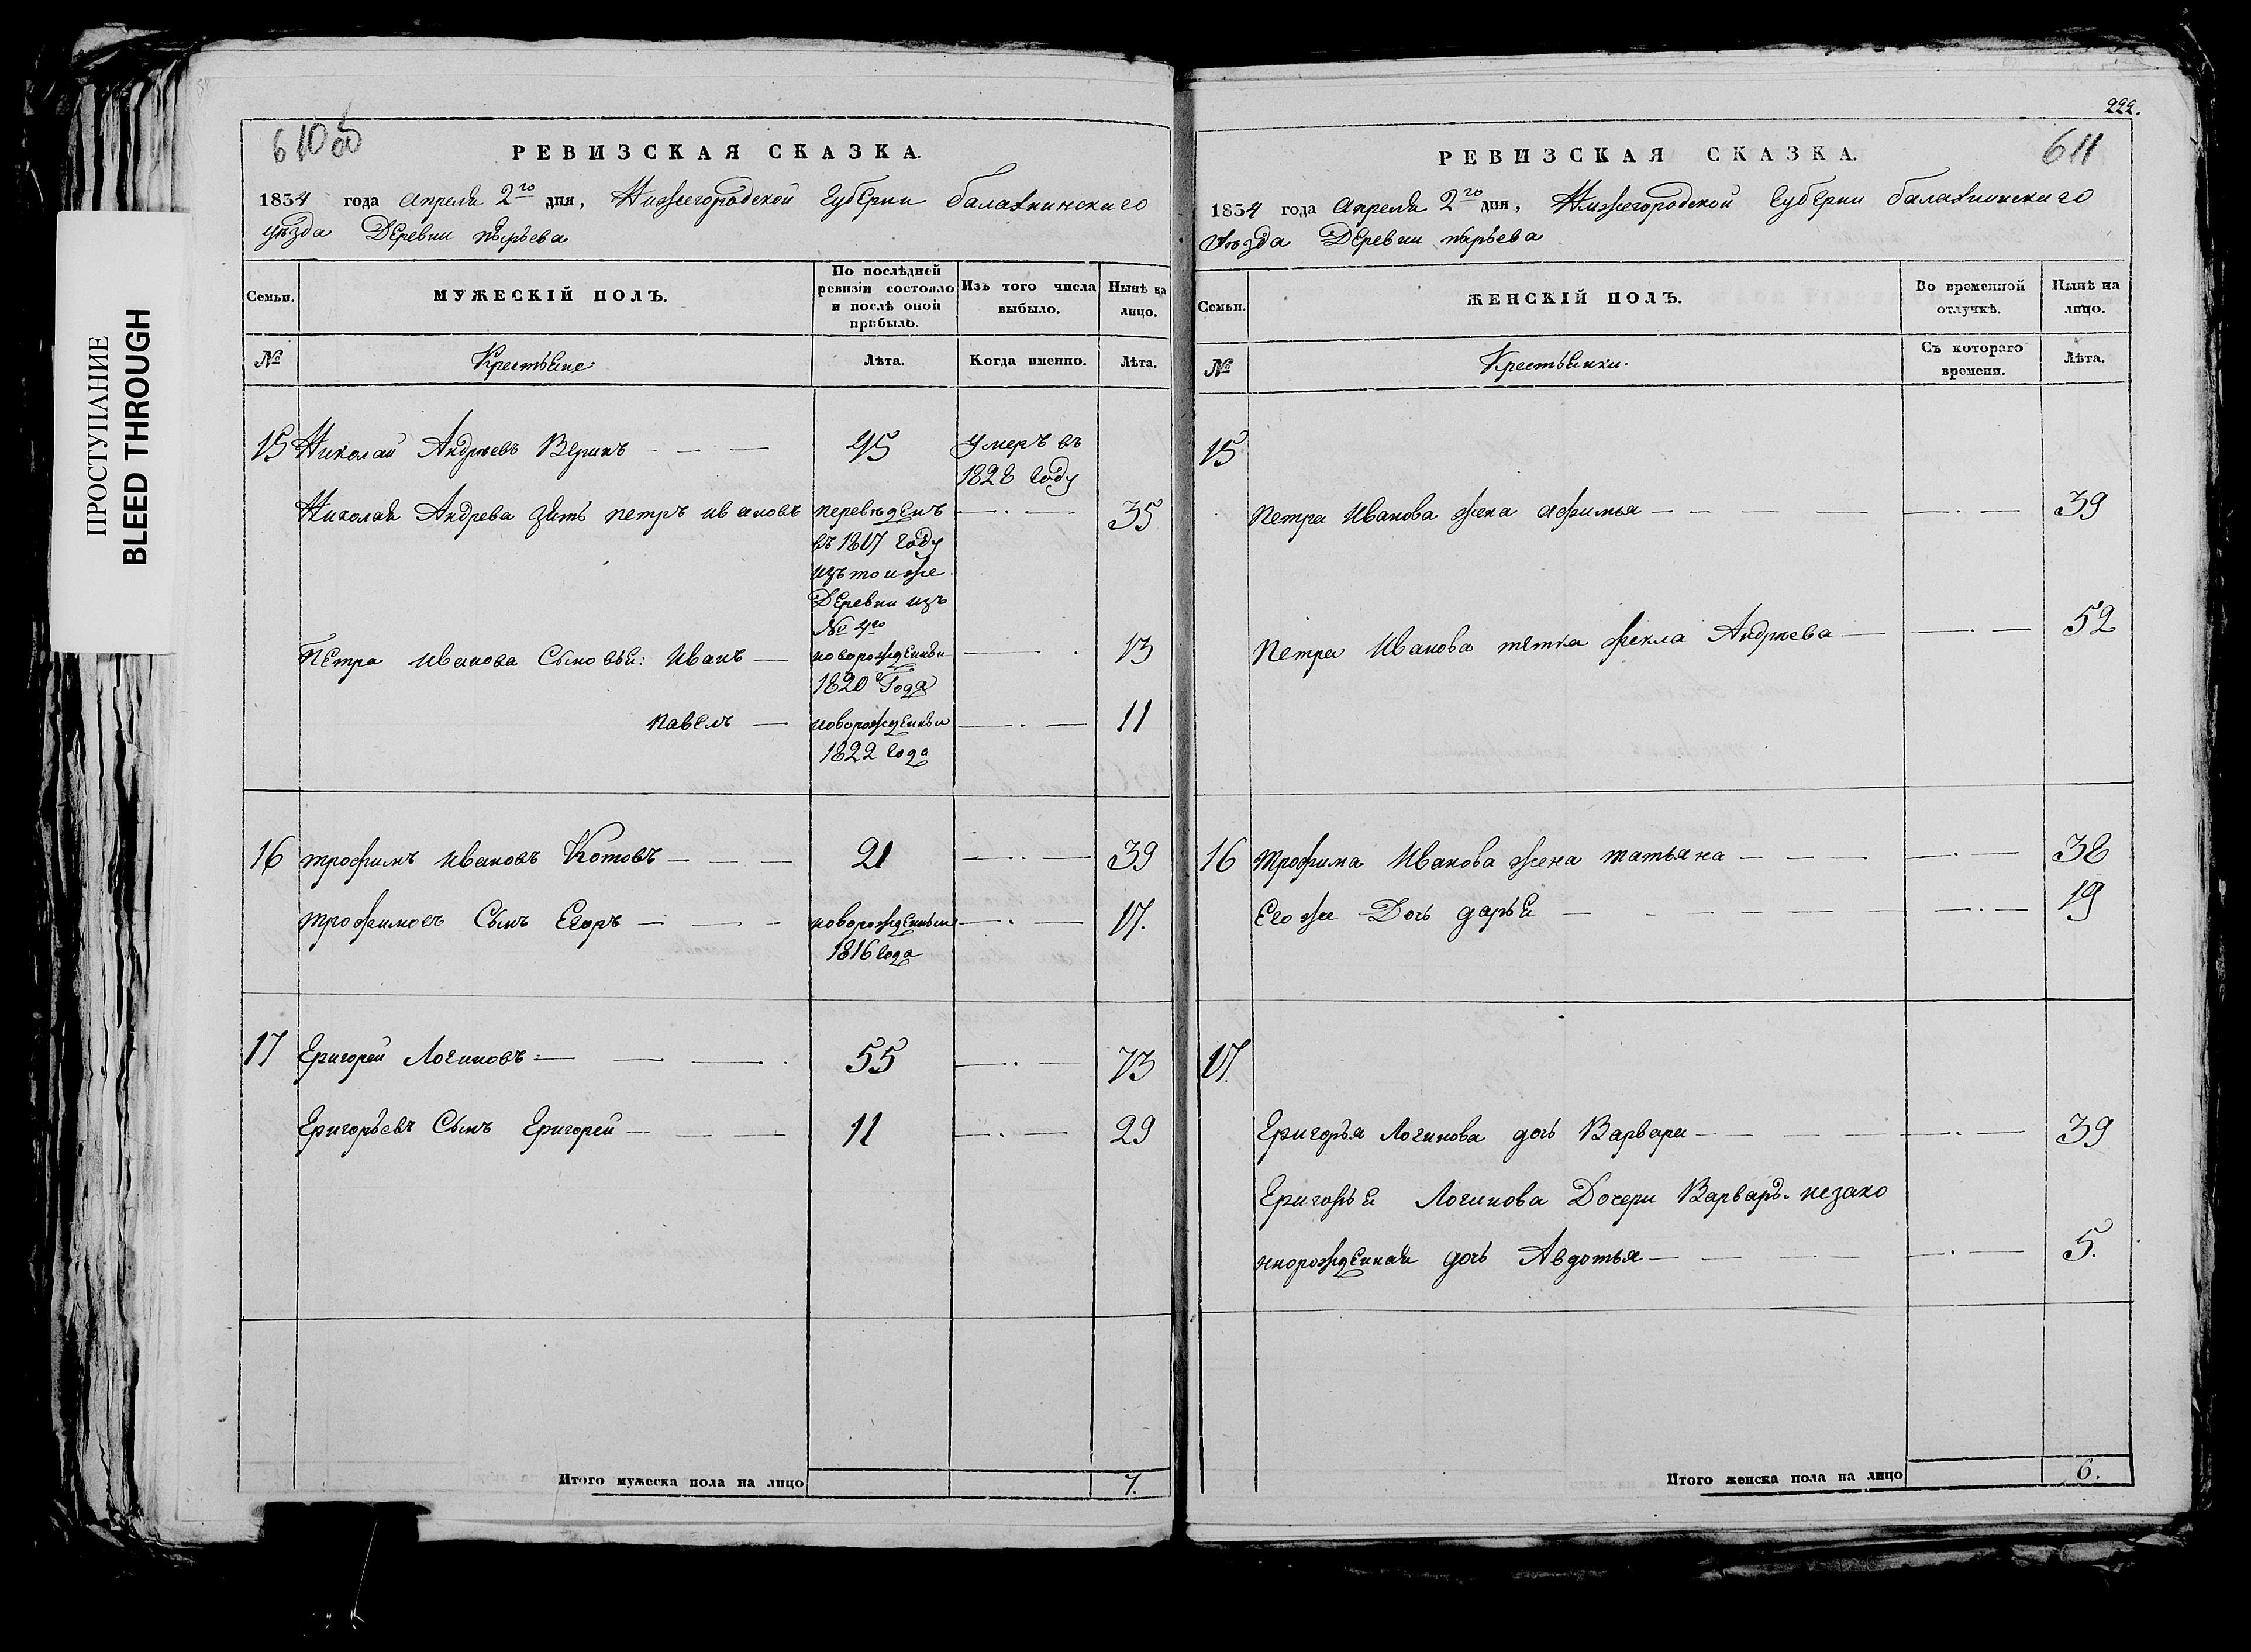 ПРОСТУПАНИЕ
BLEED THROUGH
610
РЕВИЗСКАЯ СКАЗКА.
1834 года апреля 2го дня, Нижегородской Губернии балахнинскиго
уѣзда Деревни
Семьи.
МУЖЕСКІЙ ПОЛЪ.
По послѣдней
ревизіи состояло
и послѣ оной
прибыло.
Изъ того числа
выбыло.
Нынѣ на
лицо.
№
Крестьяне
Лѣта.
Когда именно.
Лѣта.
15 Николай Андреевъ Веринъ 45 умеръ въ
1828 году
Николая Андрева зять петръ ивановъ переведенъ 35
въ 1817 году
изъ тои же
Деревни изъ
№ 4го
Петра иванова Сыновья: Иванъ новорожденный 13
1820 Года
павелъ новорожденный 11
1822 года
16 трофимъ ивановъ Котовъ 21 39
трофимовъ Сынъ Егоръ новорожденный 17.
1816 года
17 Григорей Логиновъ 55 73
Григорьевъ Сынъ Григорей 11 29
Итого мужеска пола на лицо 7.
222.
611
РЕВИЗСКАЯ СКАЗКА.
1834 года апреля 2го дня, Нижегородской Губернии балахнинскиго
уѣзда Деревни
Семьи.
ЖЕНСКІЙ ПОЛЪ.
Во временной
отлучкѣ.
Нынѣ на
лицо.
№
Крестьянки.
Съ котораго
времени.
Лѣта.
15
петра Иванова жена афимья 39
петра Иванова тетка фекла Андриева 52
16 трофима Иванова жена татьяна 38
Его же Дочь дарья 19
17.
Григорья Логинова дочь Варвара 39
Григорья Логинова Дочери Варвары незако
ннорожденная дочь Авдотья 5.
Итого женска пола на лицо 6.